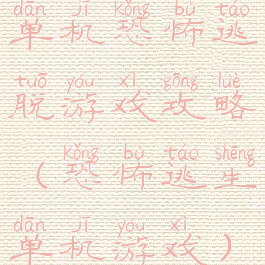 dān jī kǒng bù táo
单机恐怖逃
tuō yóu xì gōng lüè
脱游戏攻略
kǒng bù táo shēng
（恐怖逃生
dān jī yóu xì
单机游戏）